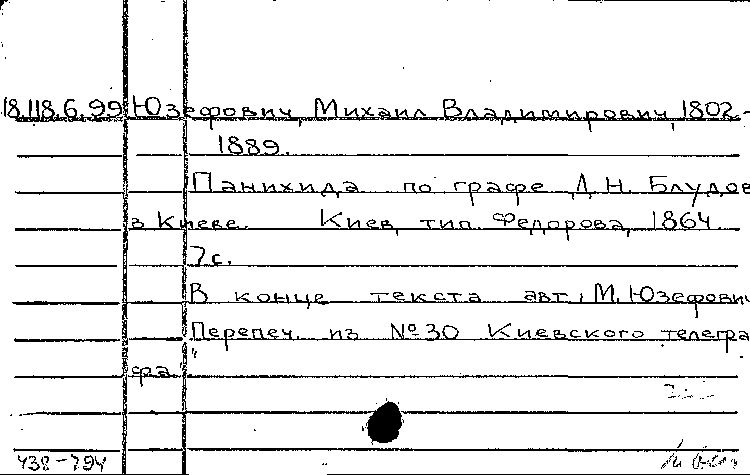 18.118.6.99 Юзефович, Михаил Владимирович, 1802-
1889.
Панихида по графе Д.Н. Блудов
в Киеве. Киев, тип. Федорова, 1864
7с.
В конце текста авт.: М. Юзефович
Перепеч. из № 30 Киевского телегра
фа"
438-794